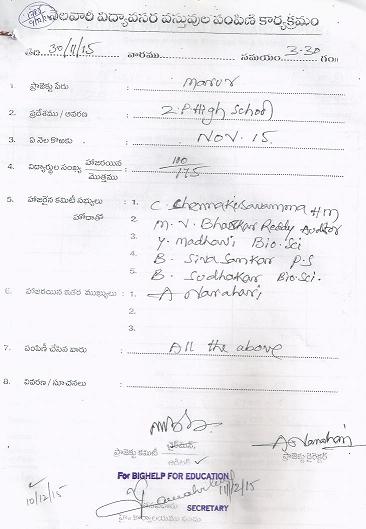 నెలవారి విద్యావసర వస్తువుల పంపిణి కార్యక్రమం
తేది 30/11/15 వారము సమయం 3-30 గం॥
1. ప్రాజెక్టు పేరు : manur
2. ప్రదేశము / ఆవరణ : Z.P High School
3. ఏ నెల కొఱకు : NOV. 15.
4. విద్యార్థుల సంఖ్య హాజరయిన / మొత్తము : 100 / 175
5. హాజరైన కమిటీ సభ్యులు : 1. C. Chennakesavamma HM
హోదాతో 2. M. V. Bhaskar Reddy Auditor
3. Y. madhavi Bio. Sci
4. B. Siva Samkar P.S
5. B. Sudhakar Bio. Sci.
6. హాజరయిన ఇతర ముఖ్యులు : 1. A Narahari
2.
3.
7. పంపిణీ చేసిన వారు : All the above
8. వివరణ / సూచనలు :
ప్రాజెక్టు కమిటీ ఛైర్మన్
ఆడిటర్
A Narahari
ప్రాజెక్టు డైరెక్టర్
For BIGHELP FOR EDUCATION
10/12/15
11/12/15
SECRETARY